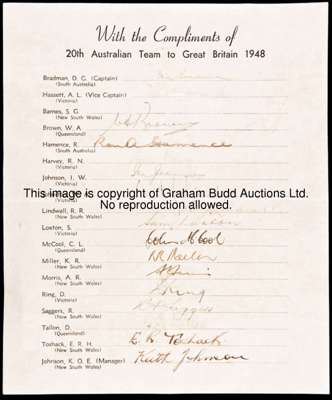 With the Compliments of
20th Australian Team to Great Britain 1948
Bradman, D. G. (Captain)
(South Australia)
Hassett, A. L. (Vice Captain)
(Victoria)
Barnes, S. G.
(New South Wales)
Brown, W. A.
(Queensland)
Hamence, R.
(South Australia)
Ron A Hamence
Harvey, R. N.
(Victoria)
Johnson, I. W.
(Victoria)
This image is copyright of Graham Budd Auctions Ltd.
No reproduction allowed.
Lindwall, R. R.
(New South Wales)
Loxton, S.
(Victoria)
Sam Loxton
McCool, C. L.
(Queensland)
Colin McCool
Miller, K. R.
(New South Wales)
Morris, A. R.
(New South Wales)
Ring, D.
(Victoria)
D Ring
Saggers, R.
(New South Wales)
Tallon, D.
(Queensland)
Toshack, E. R. H.
(New South Wales)
E. R. Toshack
Johnson, K. O. E. (Manager)
(New South Wales)
Keith Johnson